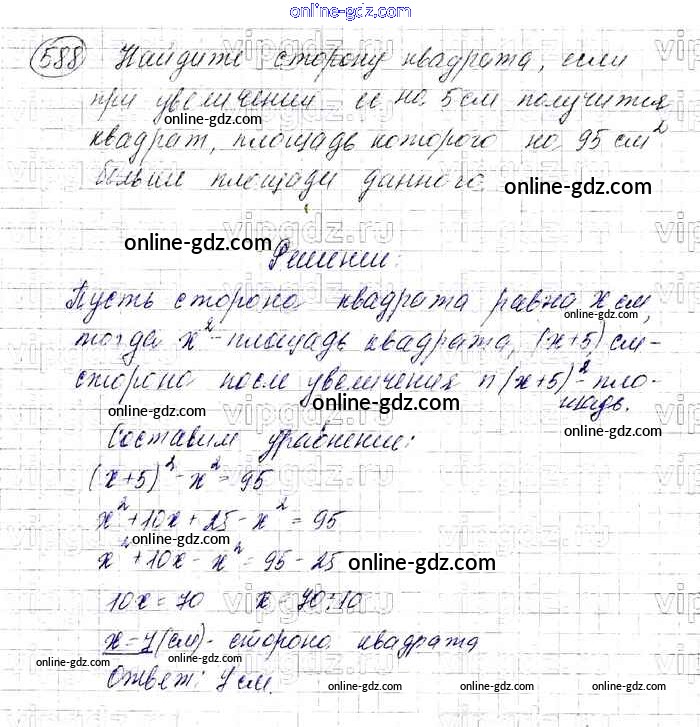 online-gdz.com
online-gdz.com
588 Найдите сторону квадрата, если
при увеличении ее на 5 см получится
online-gdz.com
квадрат, площадь которого на 95 см²
больше площади данного. online-gdz.com
online-gdz.com
Решение:
Пусть сторона квадрата равна x см,
online-gdz.com
тогда x² - площадь квадрата, (x+5) см -
online-gdz.com
сторона после увеличения и (x+5)² - пло-
щадь.
online-gdz.com
online-gdz.com
Составим уравнение:
(x+5)² - x² = 95
x² + 10x + 25 - x² = 95
online-gdz.com
x² + 10x - x² = 95 - 25 online-gdz.com
10x = 70 x = 70:10
online-gdz.com
x = 7 (см) - сторона квадрата
online-gdz.com online-gdz.com
Ответ: 7 см.
online-gdz.com online-gdz.com online-gdz.com
vipgdz.ru